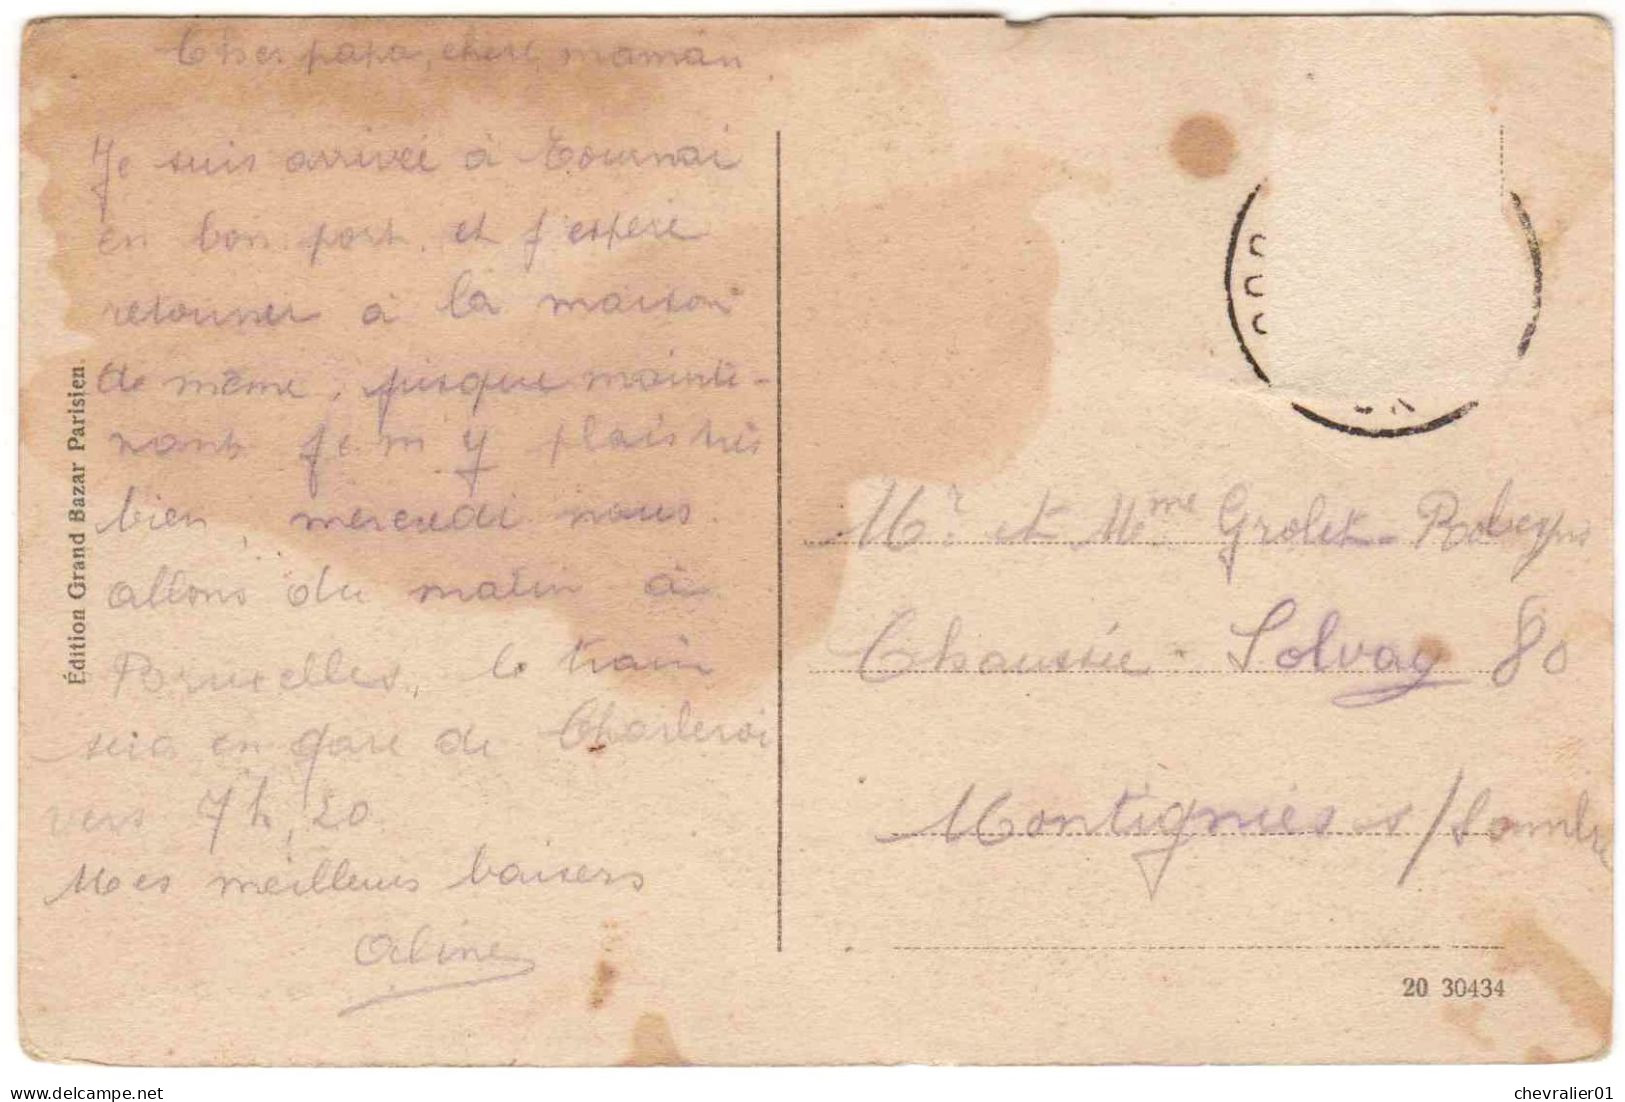 Cher papa, chère maman
Je suis arrivée à Tournai
en bon port et j'espère
retourner à la maison
de même, jusque mainte-
nant je m'y plais très
bien, mercredi nous
allons du matin à
Bruxelles, le train
sera en gare de Charleroi
vers 7h,20
Mes meilleurs baisers
Aline
Édition Grand Bazar Parisien
Mr. et Mme Grolet-
Chaussée Solvay 80
Montignies s/Sambre
20 30434
delcampe.net
chevralier01